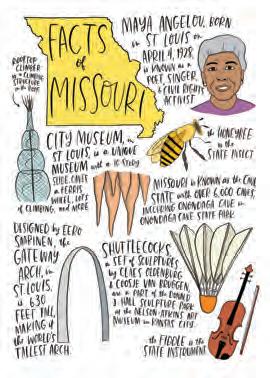 FACTS
of
MISSOURI
MAYA ANGELOU, BORN
in ST LOUIS on
APRIL 4, 1928,
is KNOWN as a
POET, SINGER,
& CIVIL RIGHTS
ACTIVIST
ROOFTOP
CLIMBER
is a CLIMBING
STRUCTURE
on the ROOF
the HONEYBEE
is the
STATE INSECT
CITY MUSEUM, in
ST LOUIS, is a UNIQUE
MUSEUM with a 10 STORY
SLIDE, CAVES,
a FERRIS
WHEEL, LOTS
of CLIMBING, and MORE
MISSOURI is KNOWN as the CAVE
STATE with OVER 6,000 CAVES,
INCLUDING ONONDAGA CAVE in
ONONDAGA CAVE STATE PARK
DESIGNED by EERO
SAARINEN, the
GATEWAY
ARCH, in
ST. LOUIS,
is 630
FEET TALL,
MAKING it
the WORLD'S
TALLEST ARCH.
SHUTTLECOCKS,
a SET of SCULPTURES
by CLAES OLDENBURG
& COOSJE VAN BRUGGEN,
are a PART of the DONALD
J. HALL SCULPTURE PARK
at the NELSON-ATKINS ART
MUSEUM in KANSAS CITY.
the FIDDLE is the
STATE INSTRUMENT